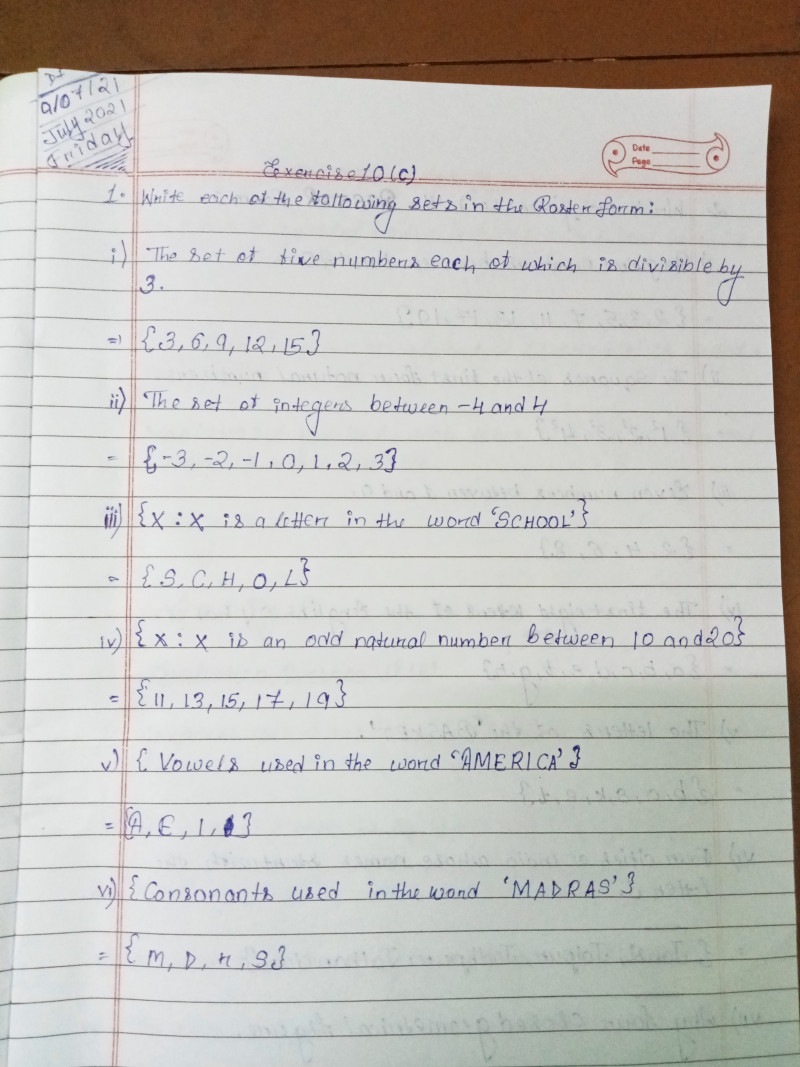 DT
9/07/21
July 2021
Friday
Date
Page
Exercise 10(c)
1. Write each of the following sets in the Roster form:
i) The set of five numbers each of which is divisible by
3.
=) {3, 6, 9, 12, 15}
ii) The set of integers between -4 and 4
= {-3, -2, -1, 0, 1, 2, 3}
iii) {X : X is a letter in the word 'SCHOOL'}
= {S, C, H, O, L}
iv) {X : X is an odd natural number between 10 and 20}
= {11, 13, 15, 17, 19}
v) { Vowels used in the word 'AMERICA' }
= {A, E, I, }
vi) {Consonants used in the word 'MADRAS' }
= { M, D, r, S}